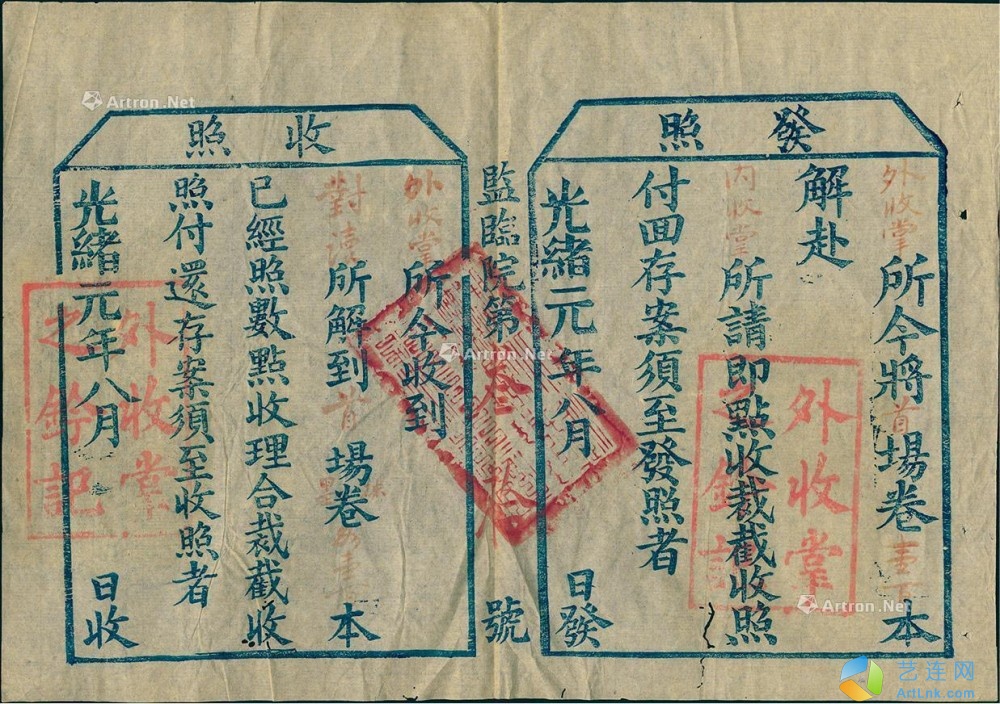 發照
外收掌所今將首場卷 本
解赴
內收掌所請即點收裁截收照
付回存案須至發照者
光緒元年八月 日發
監臨院第 號
收照
外收掌所今收到
對讀所解到首場卷 本
已經照數點收理合裁截收
照付還存案須至收照者
光緒元年八月 日收
外收掌
之鈐記
外收掌
之鈐記
Artron.Net
Artron.Net
Artron.Net
Artron.Net
艺连网
ArtLnk.com